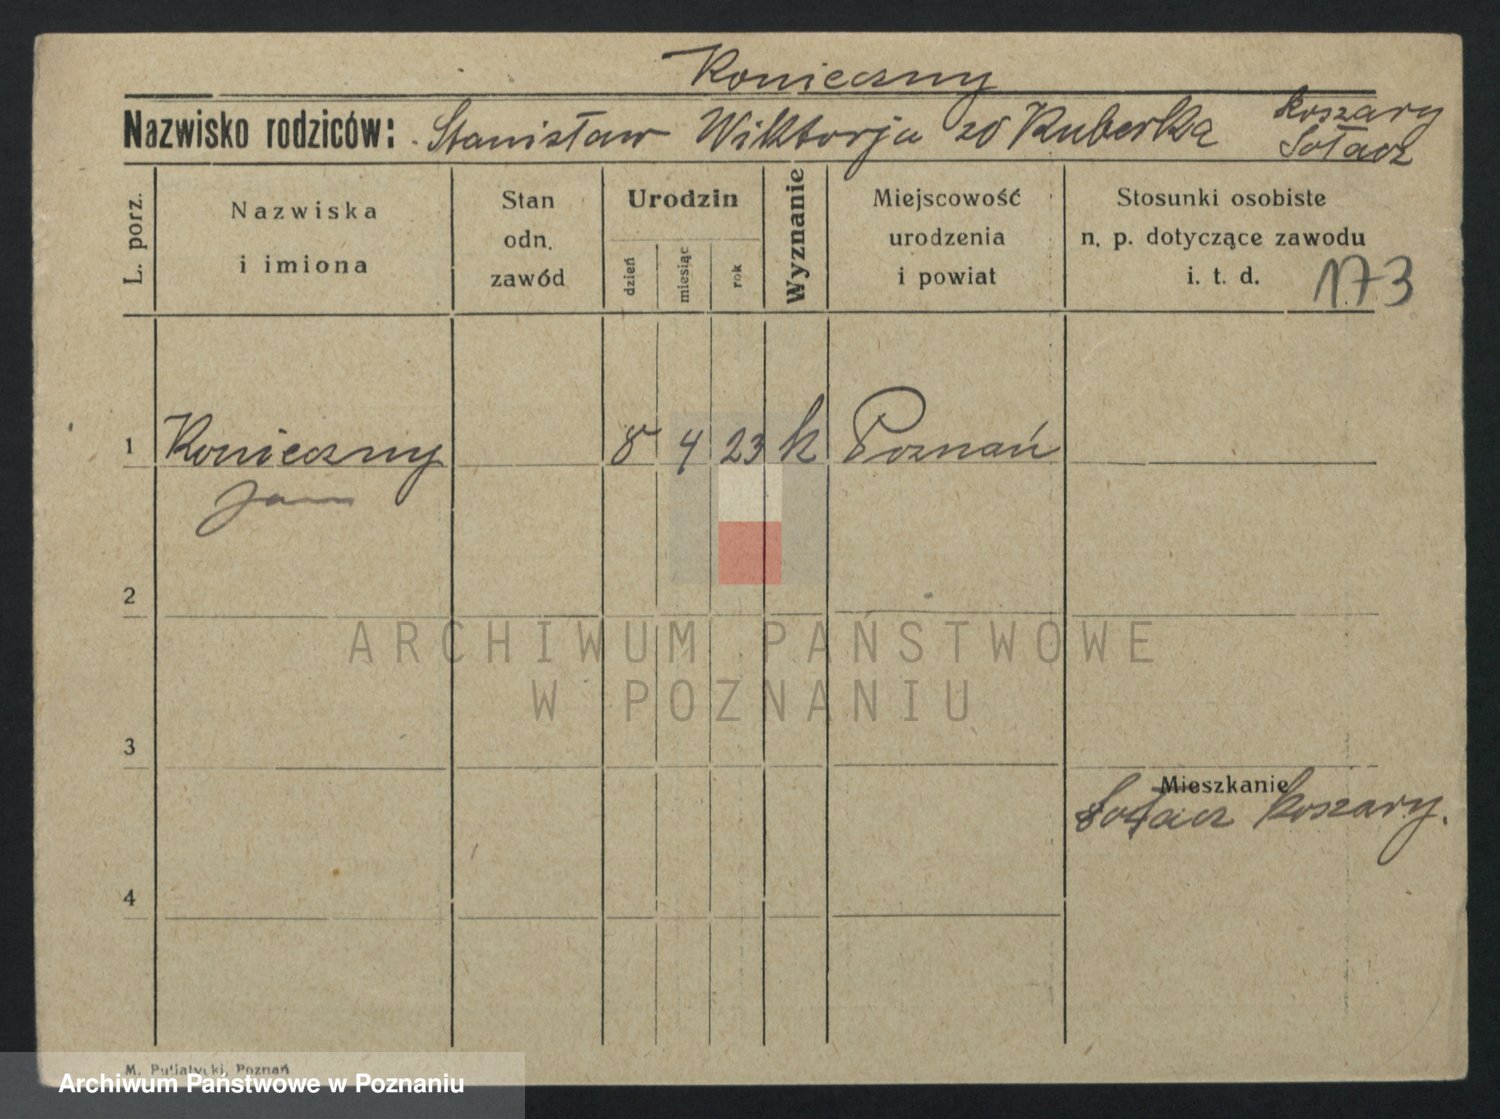 Konieczny
Nazwisko rodziców: Stanisław Wiktorja zd Kuberka koszary
Sołacz
L. porz.
Nazwiska
i imiona
Stan
odn.
zawód
Urodzin
dzień
miesiąc
rok
Wyznanie
Miejscowość
urodzenia
i powiat
Stosunki osobiste
n. p. dotyczące zawodu
i. t. d.
173
1 Konieczny 8 4 23 k Poznań
Jan
2
ARCHIWUM PAŃSTWOWE
W POZNANIU
3
Mieszkanie
Sołacz koszary.
4
M. Putiatycki, Poznań
Archiwum Państwowe w Poznaniu